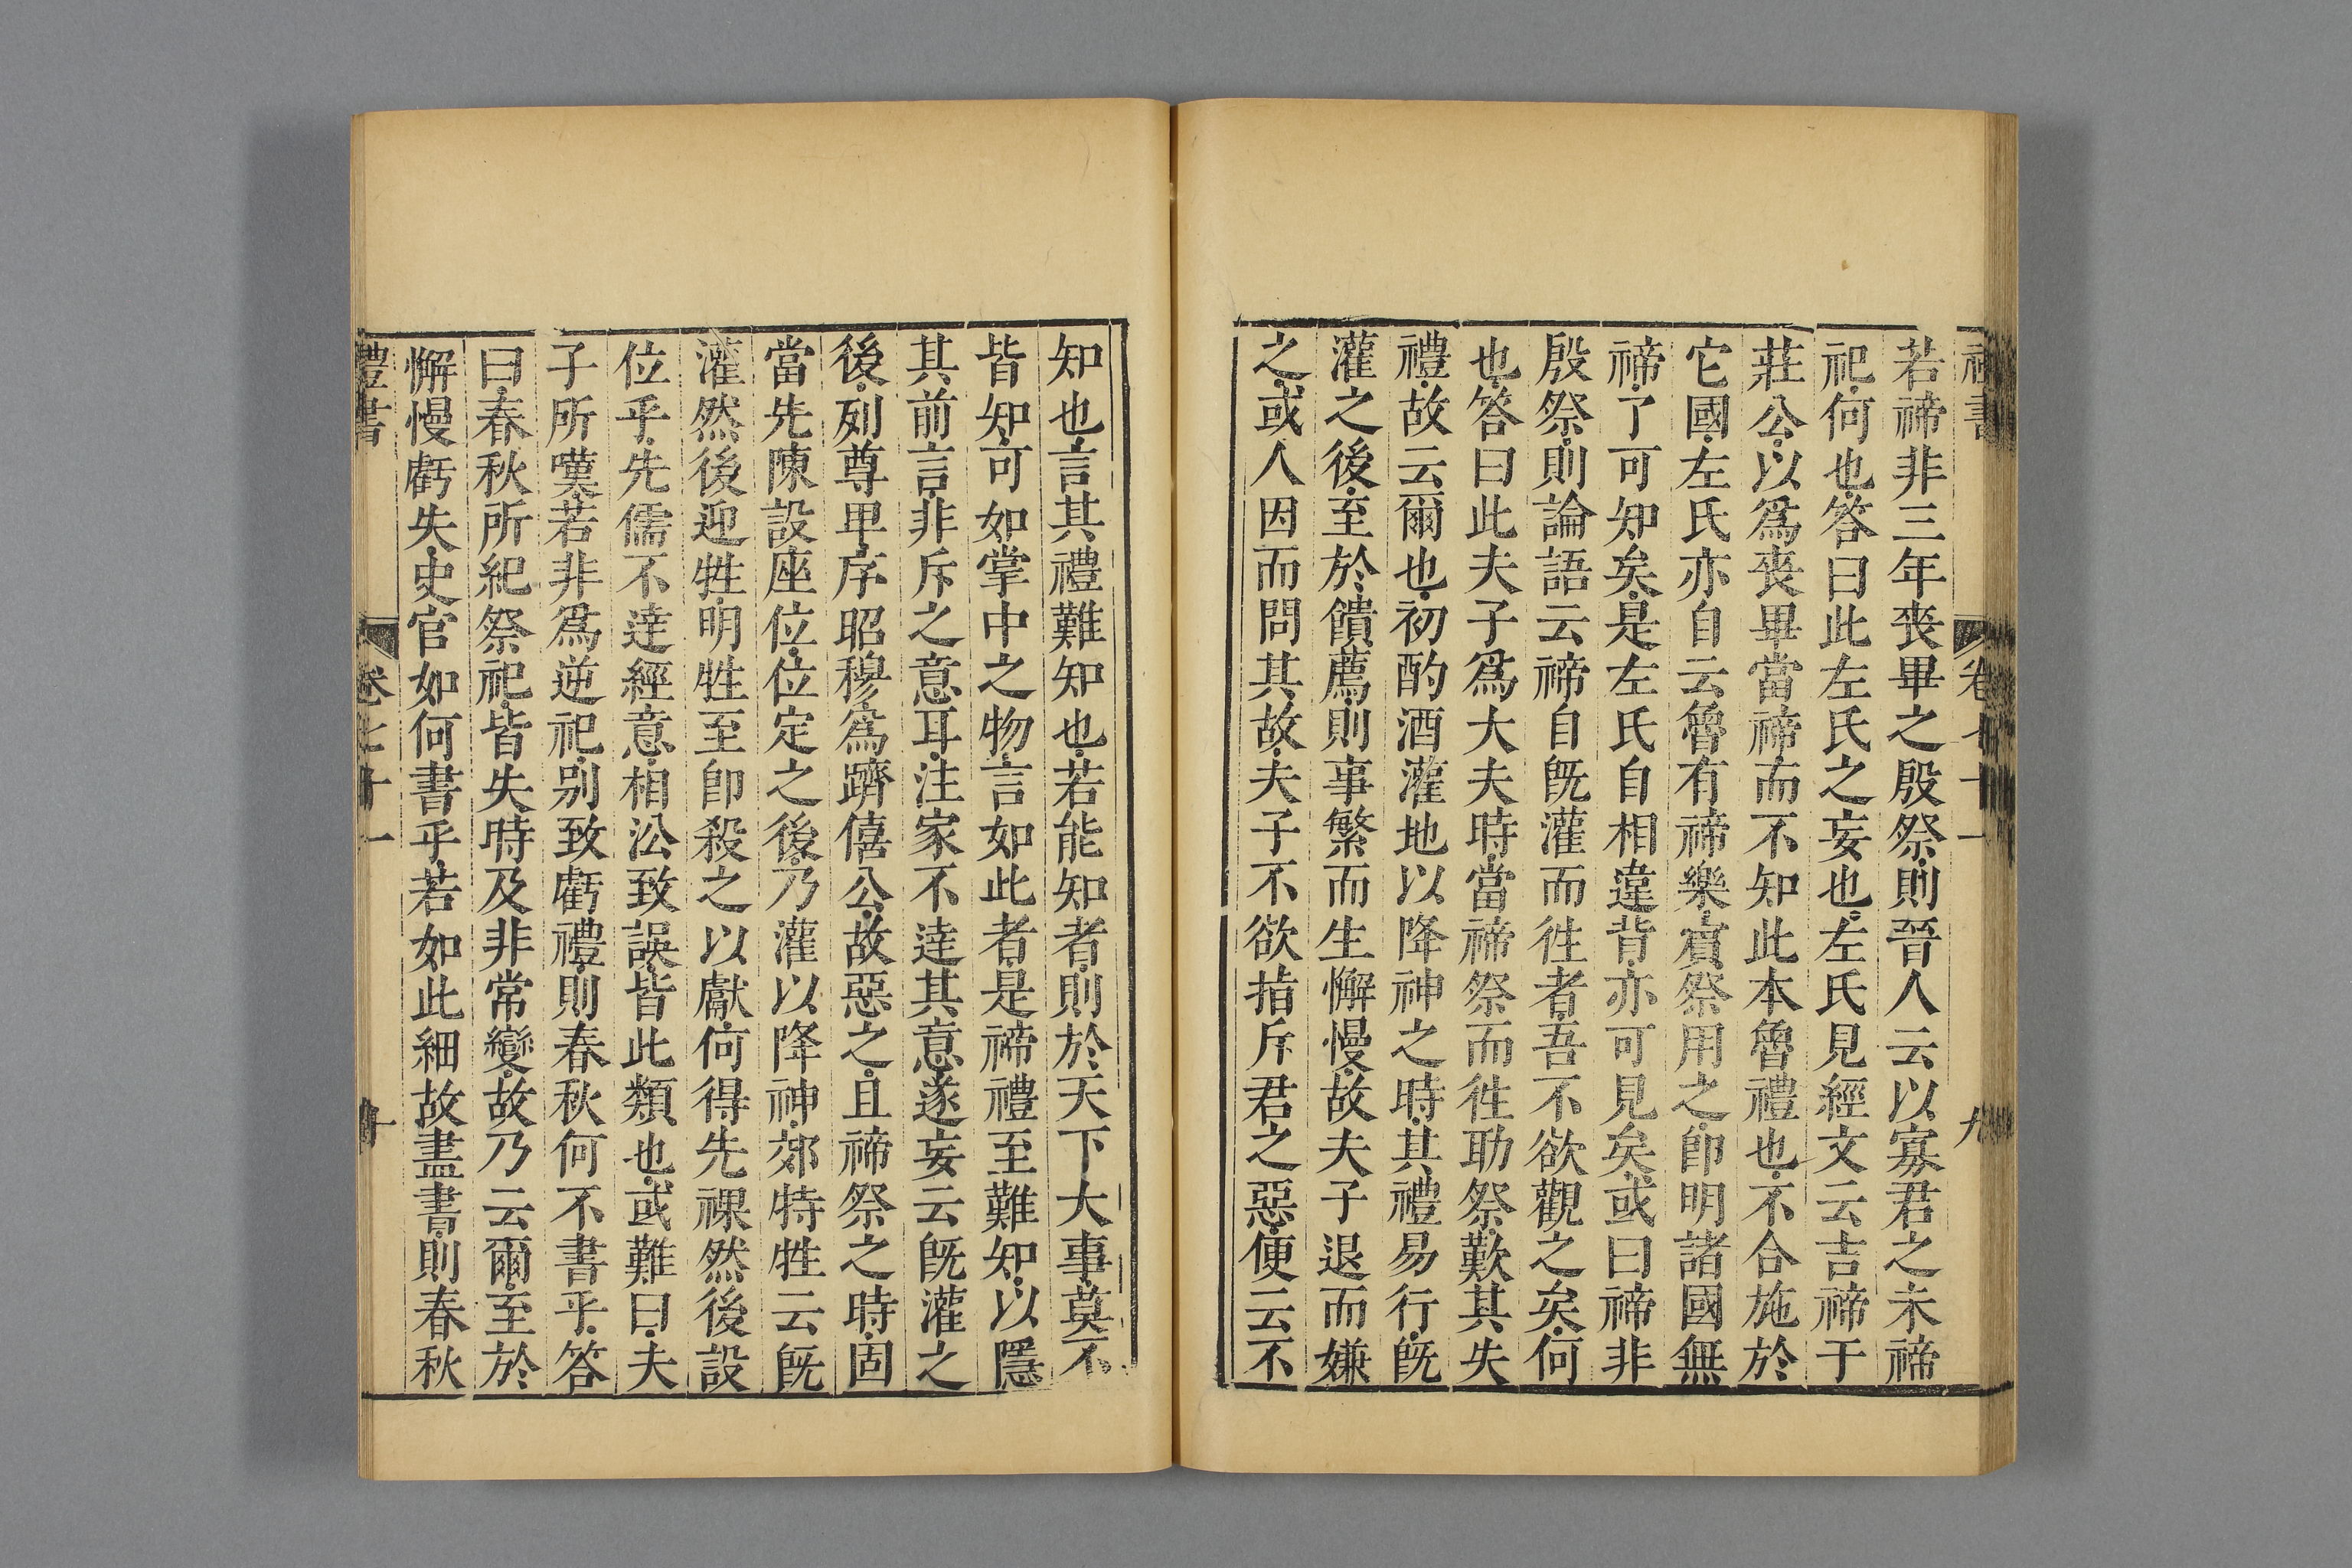 禮書 卷七十一 九
若禘非三年喪畢之殷祭則晉人云以寡君之未禘
祀何也答曰此左氏之妄也左氏見經文云吉禘于
莊公以爲喪畢當禘而不知此本魯禮也不合施於
它國左氏亦自云魯有禘樂賓祭用之卽明諸國無
禘了可知矣是左氏自相違背亦可見矣或曰禘非
殷祭則論語云禘自旣灌而徃者吾不欲觀之矣何
也答曰此夫子爲大夫時當禘祭而徃助祭歎其失
禮故云爾也初酌酒灌地以降神之時其禮易行旣
灌之後至於饋薦則事繁而生懈慢故夫子退而嫌
之或人因而問其故夫子不欲指斥君之惡便云不
知也言其禮難知也若能知者則於天下大事莫不
皆知可如掌中之物言如此者是禘禮至難知以隱
其前言非斥之意耳注家不達其意遂妄云旣灌之
後列尊卑序昭穆爲躋僖公故惡之且禘祭之時固
當先陳設座位位定之後乃灌以降神郊特牲云旣
灌然後迎牲明牲至卽殺之以獻何得先祼然後設
位乎先儒不達經意相㳂致誤皆此類也或難曰夫
子所嘆若非爲逆祀別致虧禮則春秋何不書乎答
曰春秋所紀祭祀皆失時及非常變故乃云爾至於
懈慢虧失史官如何書乎若如此細故盡書則春秋
禮書 卷七十一 十